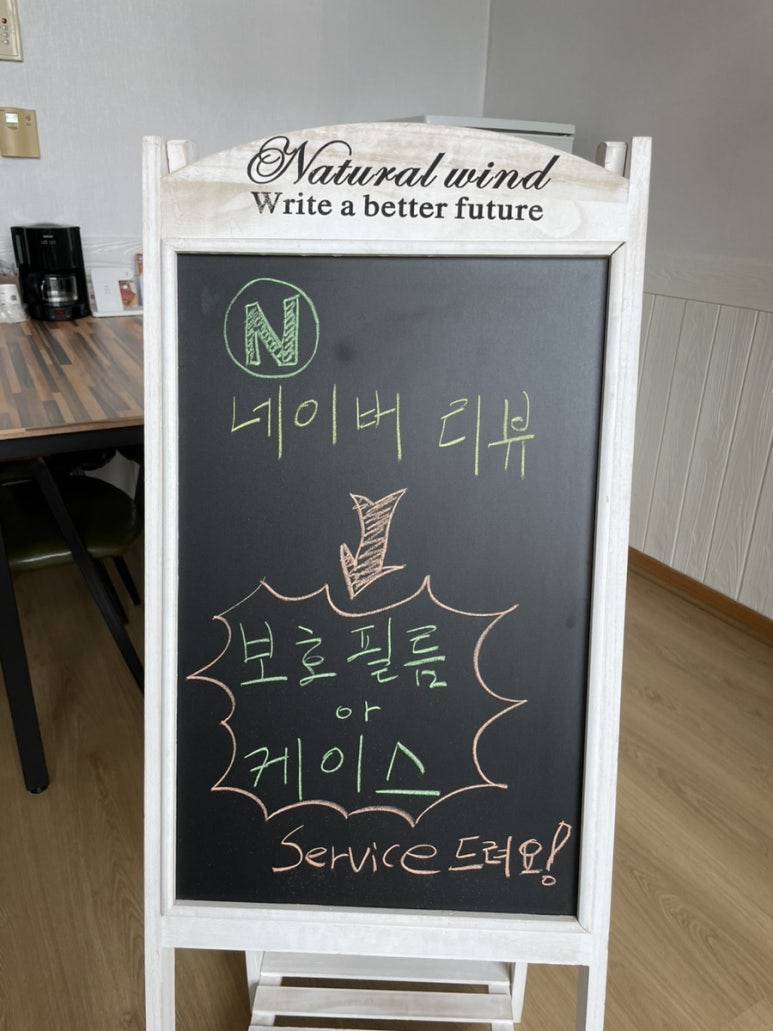 Natural wind
Write a better future
N
네이버 리뷰
보호필름
or
케이스
Service 드려요!